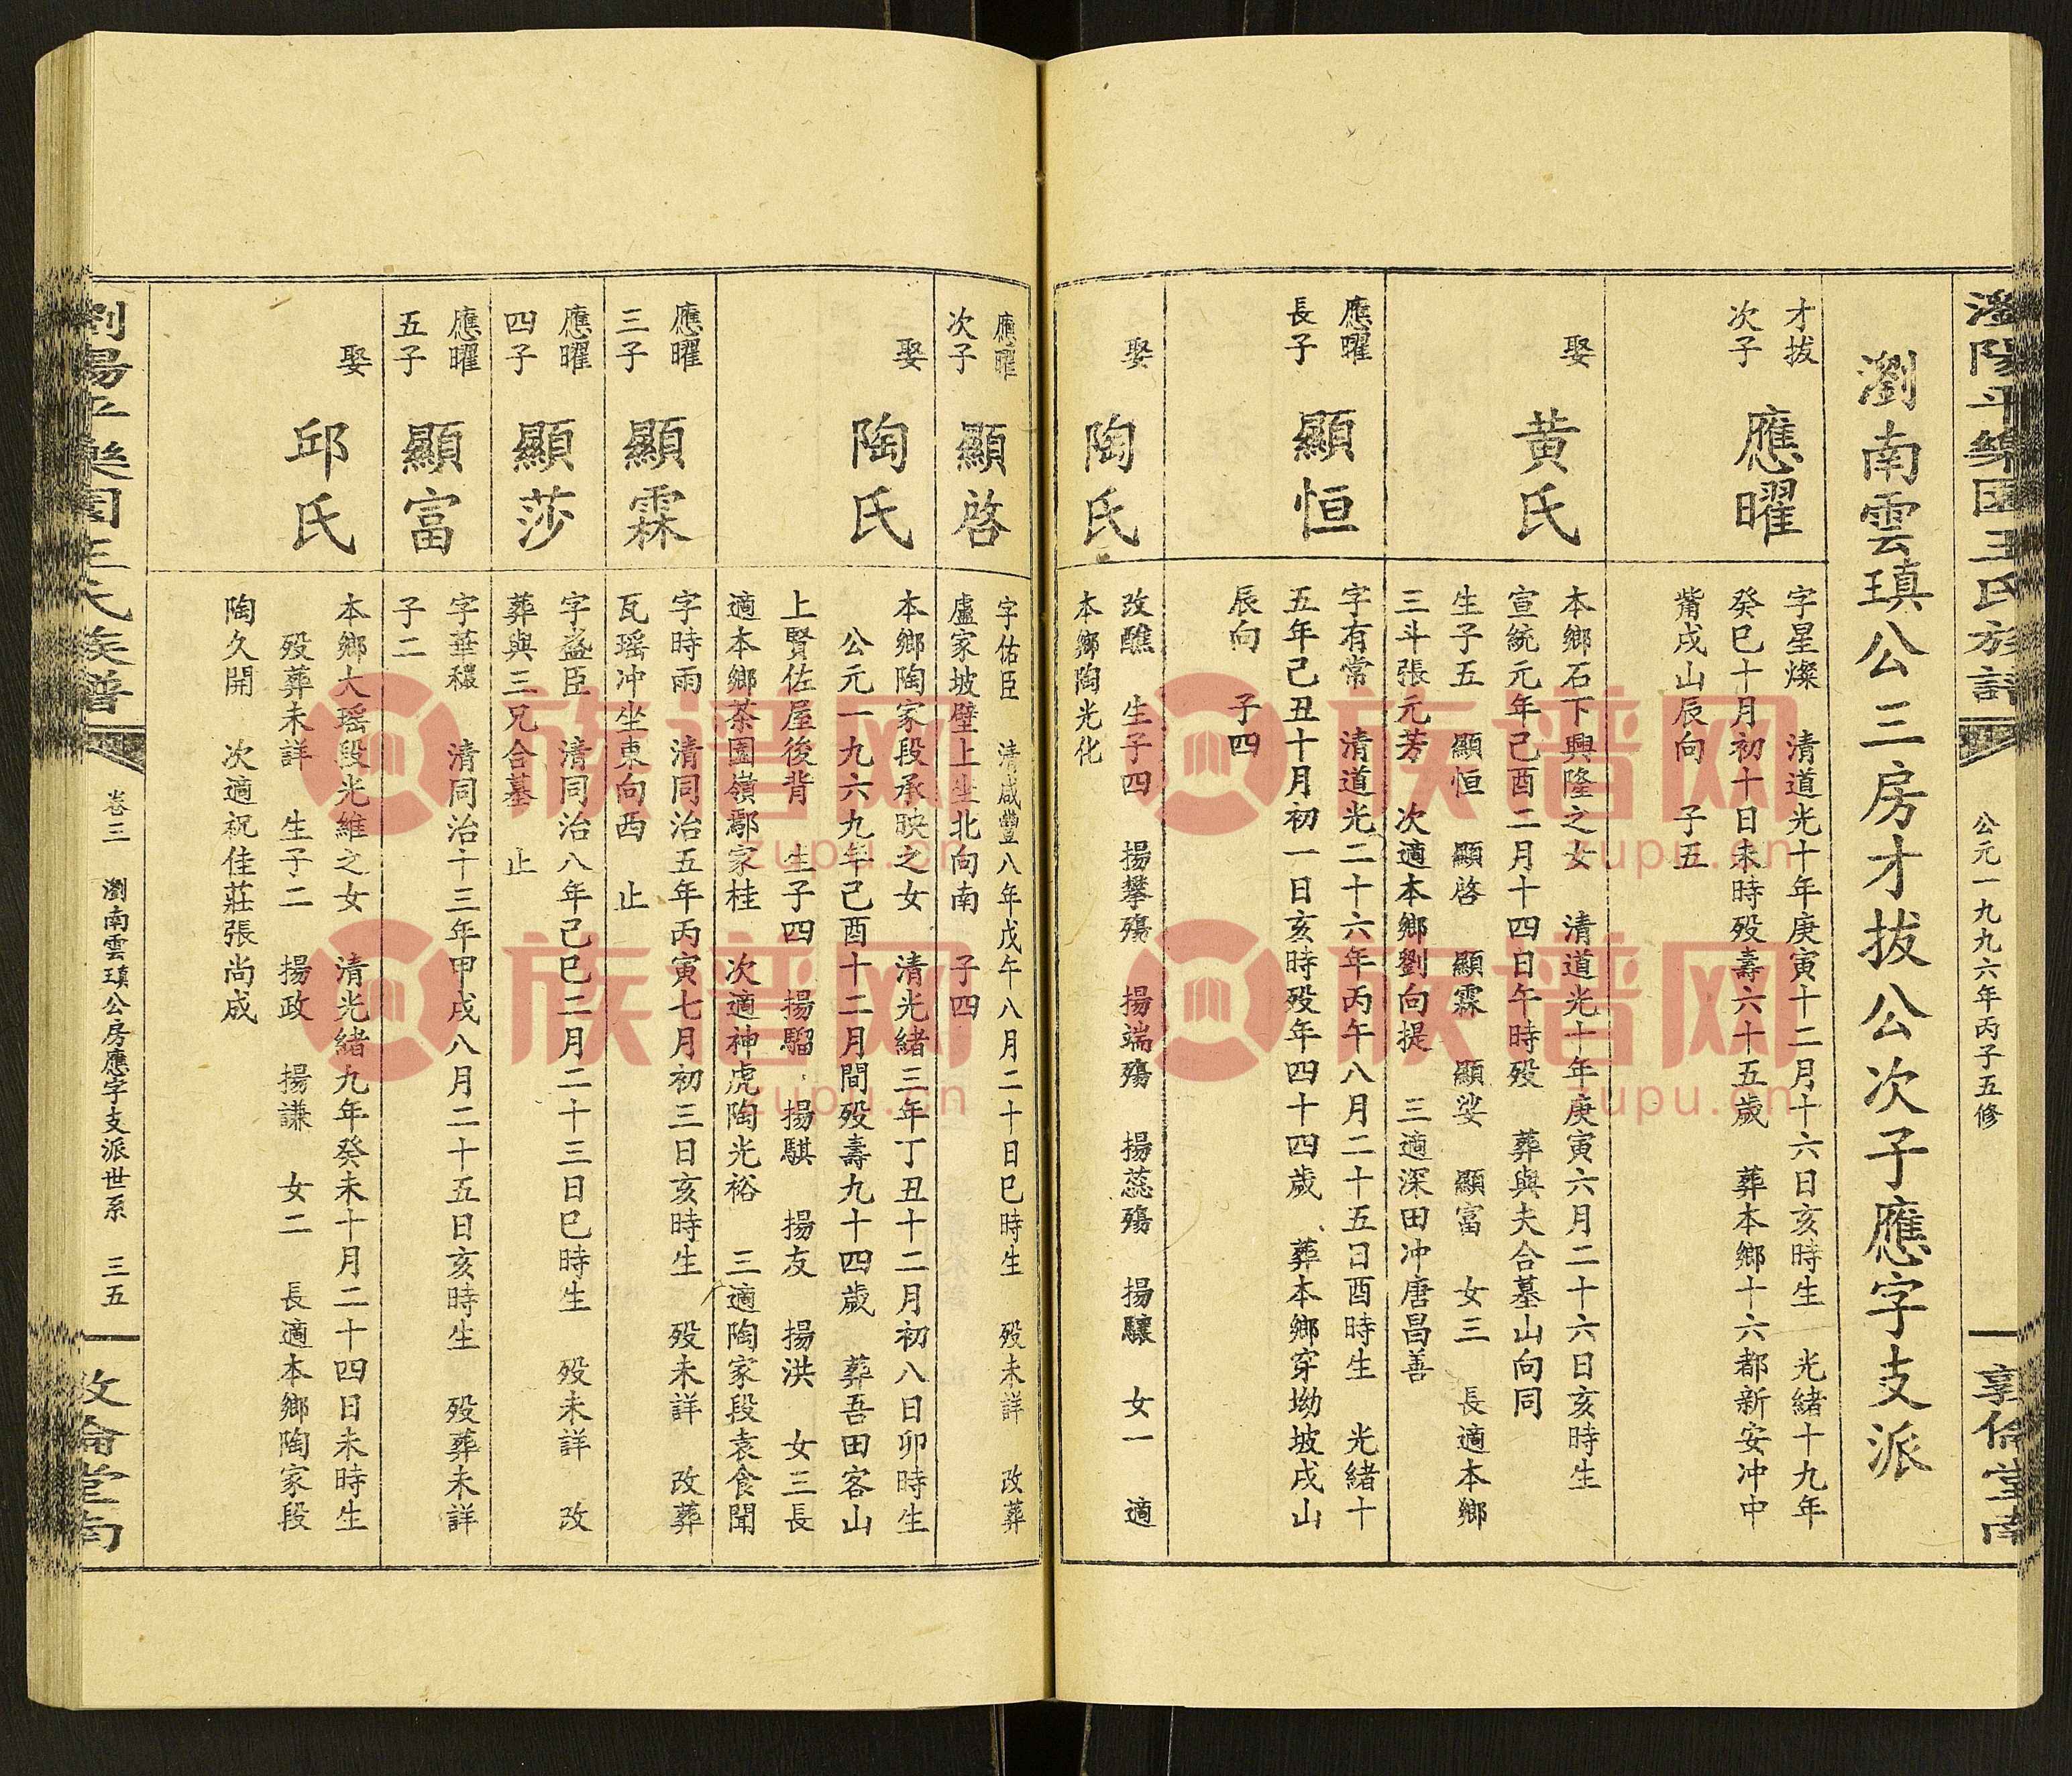 公元一九九六年丙子五修
瀏南雲瑱公三房才拔公次子應字支派
才拔
次子
應曜
字星燦 清道光十年庚寅十二月十六日亥時生 光緒十九年
癸巳十月初十日未時殁壽六十五歲 葬本鄉十六都新安冲中
觜戌山辰向 子五
娶
黄氏
本鄉石下興隆之女 清道光十年庚寅六月二十六日亥時生
宣統元年己酉二月十四日午時殁 葬與夫合墓山向同
生子五 顯恒 顯啓 顯霖 顯娑 顯富 女三 長適本鄉
三斗張元芳 次適本鄉劉向提 三適深田冲唐昌善
應曜
長子
顯恒
字有常 清道光二十六年丙午八月二十五日酉時生 光緒十
五年己丑十月初一日亥時殁年四十四歲 葬本鄉穿坳坡戌山
辰向 子四
娶
陶氏
改醮 生子四 揚攀殤 揚端殤 揚蕊殤 揚驤 女一 適
本鄉陶光化
應曜
次子
顯啓
字佑臣 清咸豐八年戊午八月二十日巳時生 殁未詳 改葬
盧家坡壁上坐北向南 子四
娶
陶氏
本鄉陶家段承映之女 清光緒三年丁丑十二月初八日卯時生
公元一九六九年己酉十二月間殁壽九十四歲 葬吾田客山
上賢佐屋後背 生子四 揚騮 揚騏 揚友 揚洪 女三長
適本鄉茶園嶺鄢家桂 次適神虎陶光裕 三適陶家段袁食聞
應曜
三子
顯霖
字時雨 清同治五年丙寅七月初三日亥時生 殁未詳 改葬
瓦瑶冲坐東向西 止
應曜
四子
顯莎
字盗臣 清同治八年己巳二月二十三日巳時生 殁未詳 改
葬與三兄合墓 止
應曜
五子
顯富
字華穠 清同治十三年甲戌八月二十五日亥時生 殁葬未詳
子二
娶
邱氏
本鄉大瑶段光維之女 清光緒九年癸未十月二十四日未時生
殁葬未詳 生子二 揚政 揚謙 女二 長適本鄉陶家段
陶久開 次適祝佳莊張尚成
卷三 瀏南雲瑱公房應字支派世系 三五
族谱网
zupu.cn
族谱网
zupu.cn
族谱网
zupu.cn
族谱网
zupu.cn